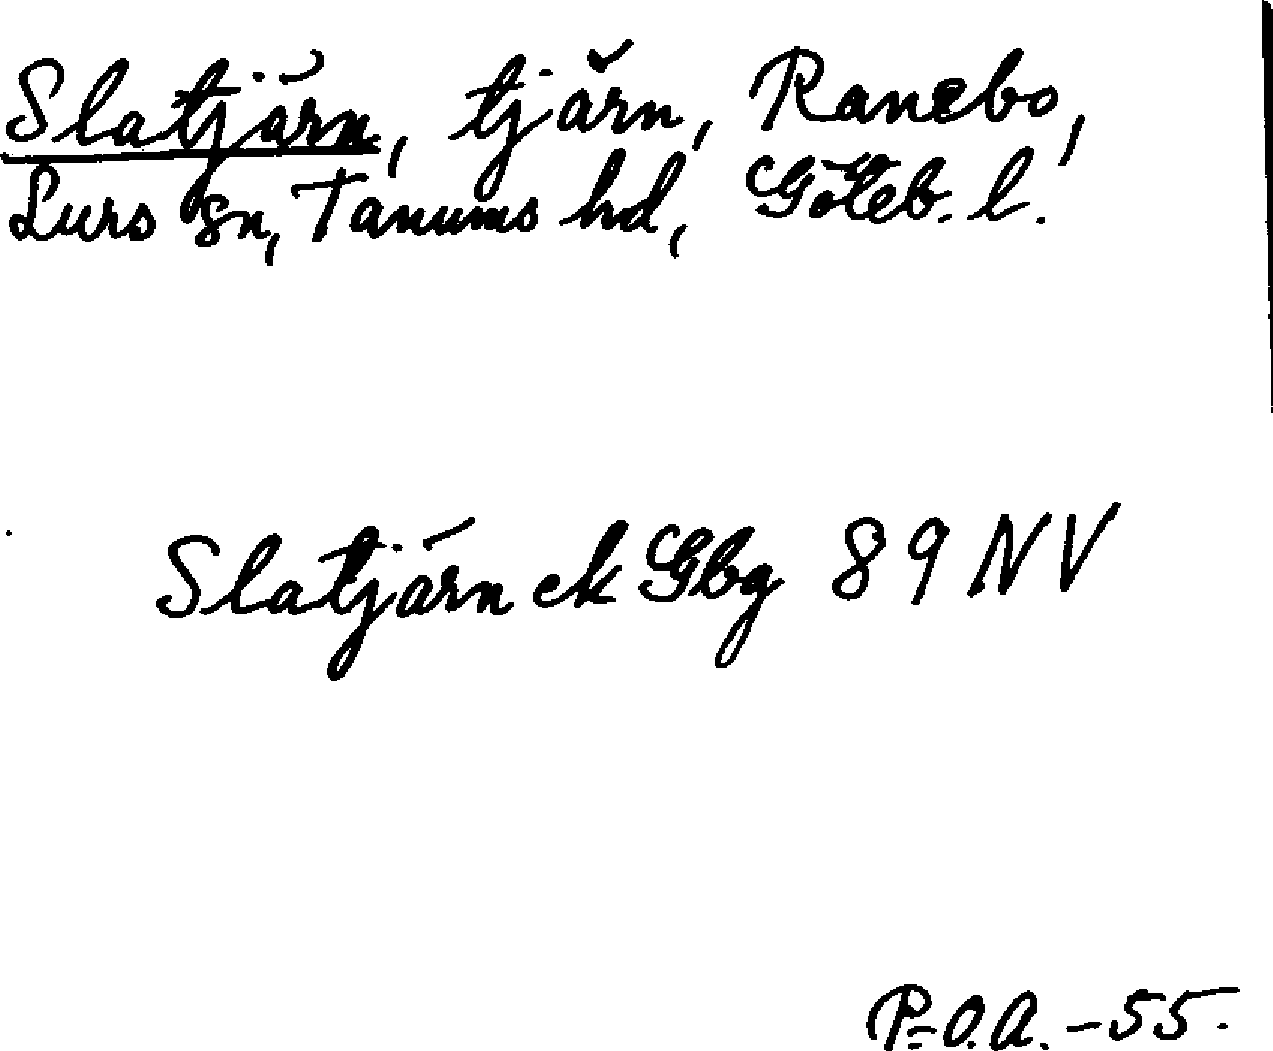 Slatjärn, tjärn, Ranebo,
Lurs sn, Tanums hd, Göteb. l.
Slatjärn ek Gbg 89 NV
P.-O.A. -55.